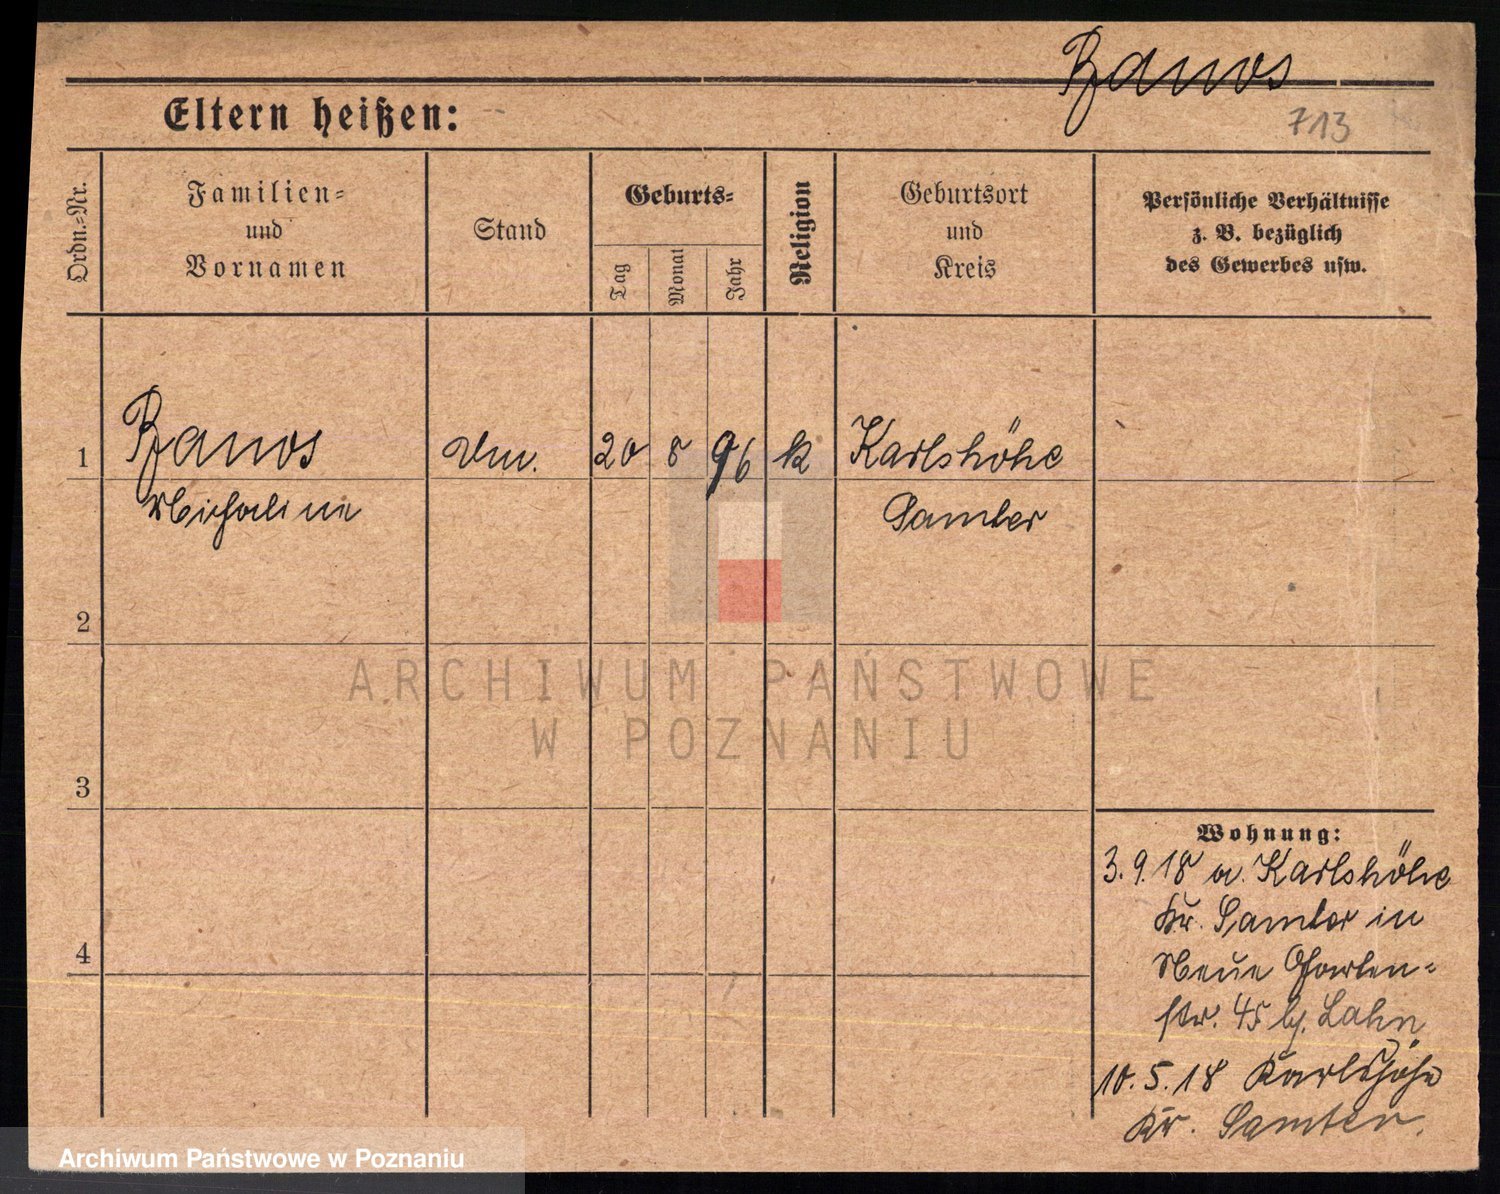 Banos
713
Eltern heißen:
Ordn.-Nr.
Familien-
und
Vornamen
Stand
Geburts-
Tag
Monat
Jahr
Religion
Geburtsort
und
Kreis
Persönliche Verhältnisse
z. B. bezüglich
des Gewerbes usw.
1 Banos 20 8 96 k Karlshöhe
Michaline Samter
2
3
4
Wohnung:
3.9.18 a. Karlshöhe
Kr. Samter in
Neue Garten-
str. 45 b. Lahn
10.5.18 Karlshöhe
Kr. Samter.
ARCHIWUM PAŃSTWOWE
W POZNANIU
Archiwum Państwowe w Poznaniu